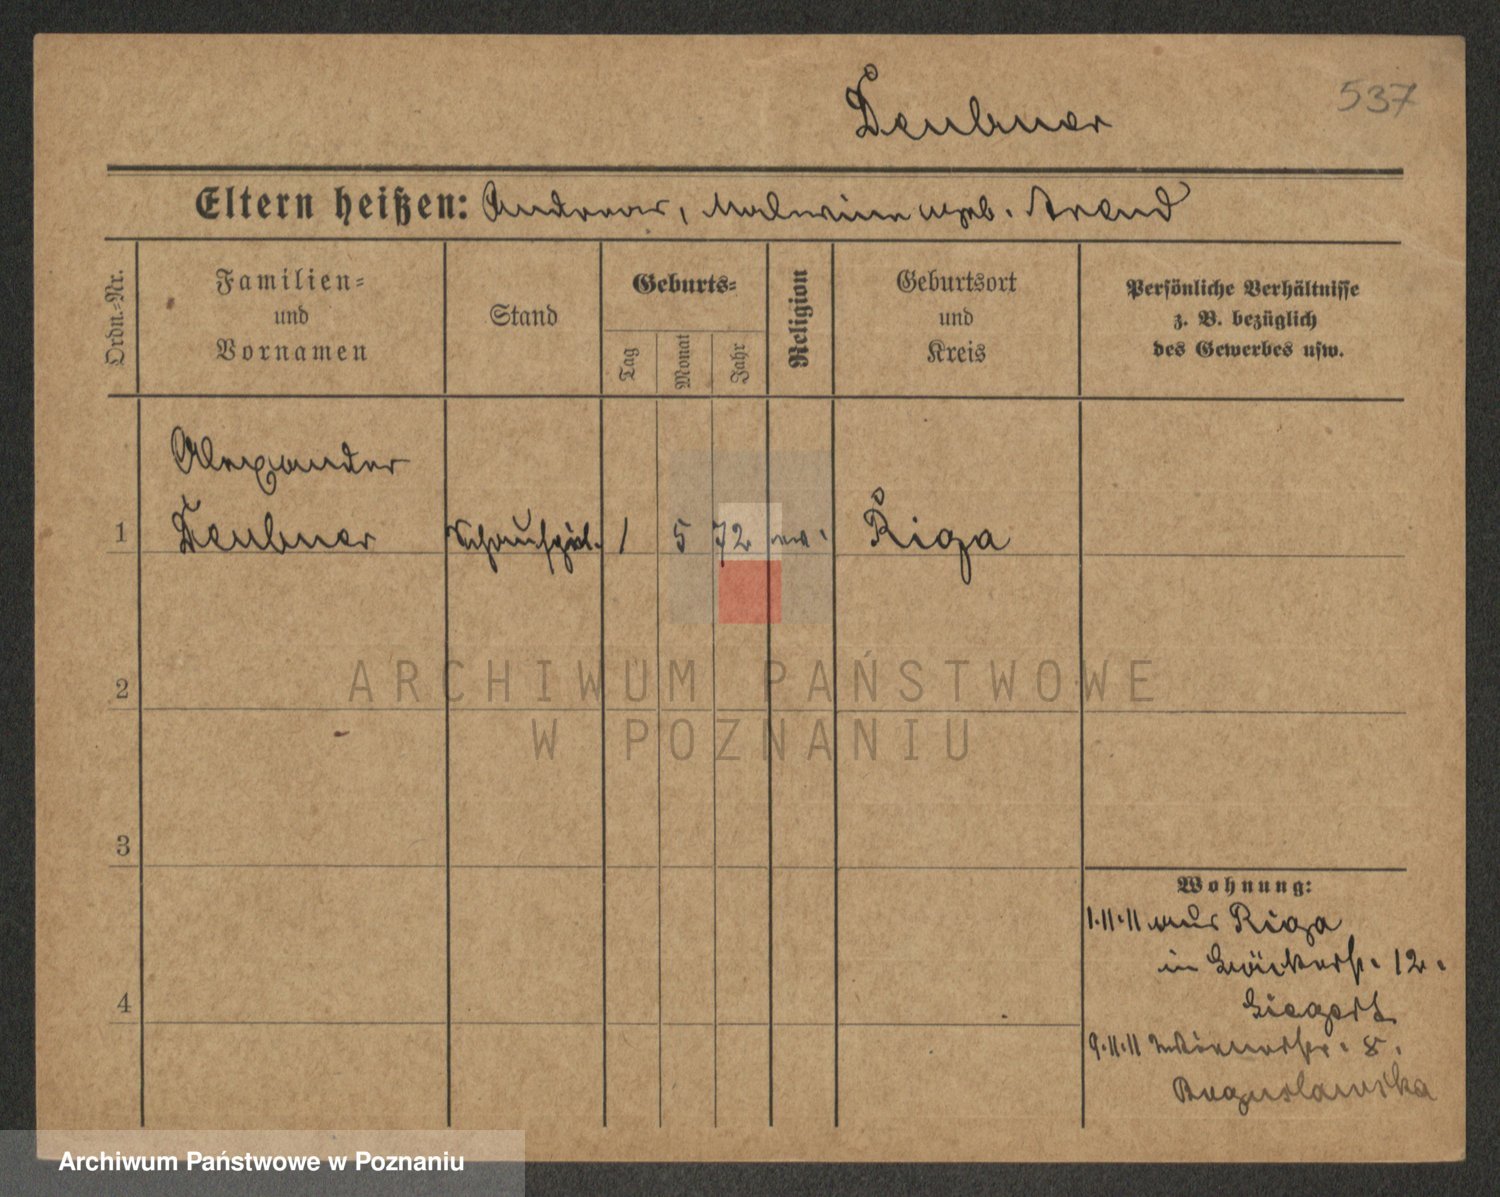 Deubner
537
Eltern heißen: Andreas, Malwine geb. Arend
Ordn.-Nr.
Familien-
und
Vornamen
Stand
Geburts-
Tag
Monat
Jahr
Religion
Geburtsort
und
Kreis
Persönliche Verhältnisse
z. B. bezüglich
des Gewerbes usw.
Alexander
1 Deubner Schauspiel. 1 5 72 ev. Riga
2
ARCHIWUM PAŃSTWOWE
W POZNANIU
3
Wohnung:
1.11.11 aus Riga
in 12.
4
9.11.11 8.
Boguslawska
Archiwum Państwowe w Poznaniu